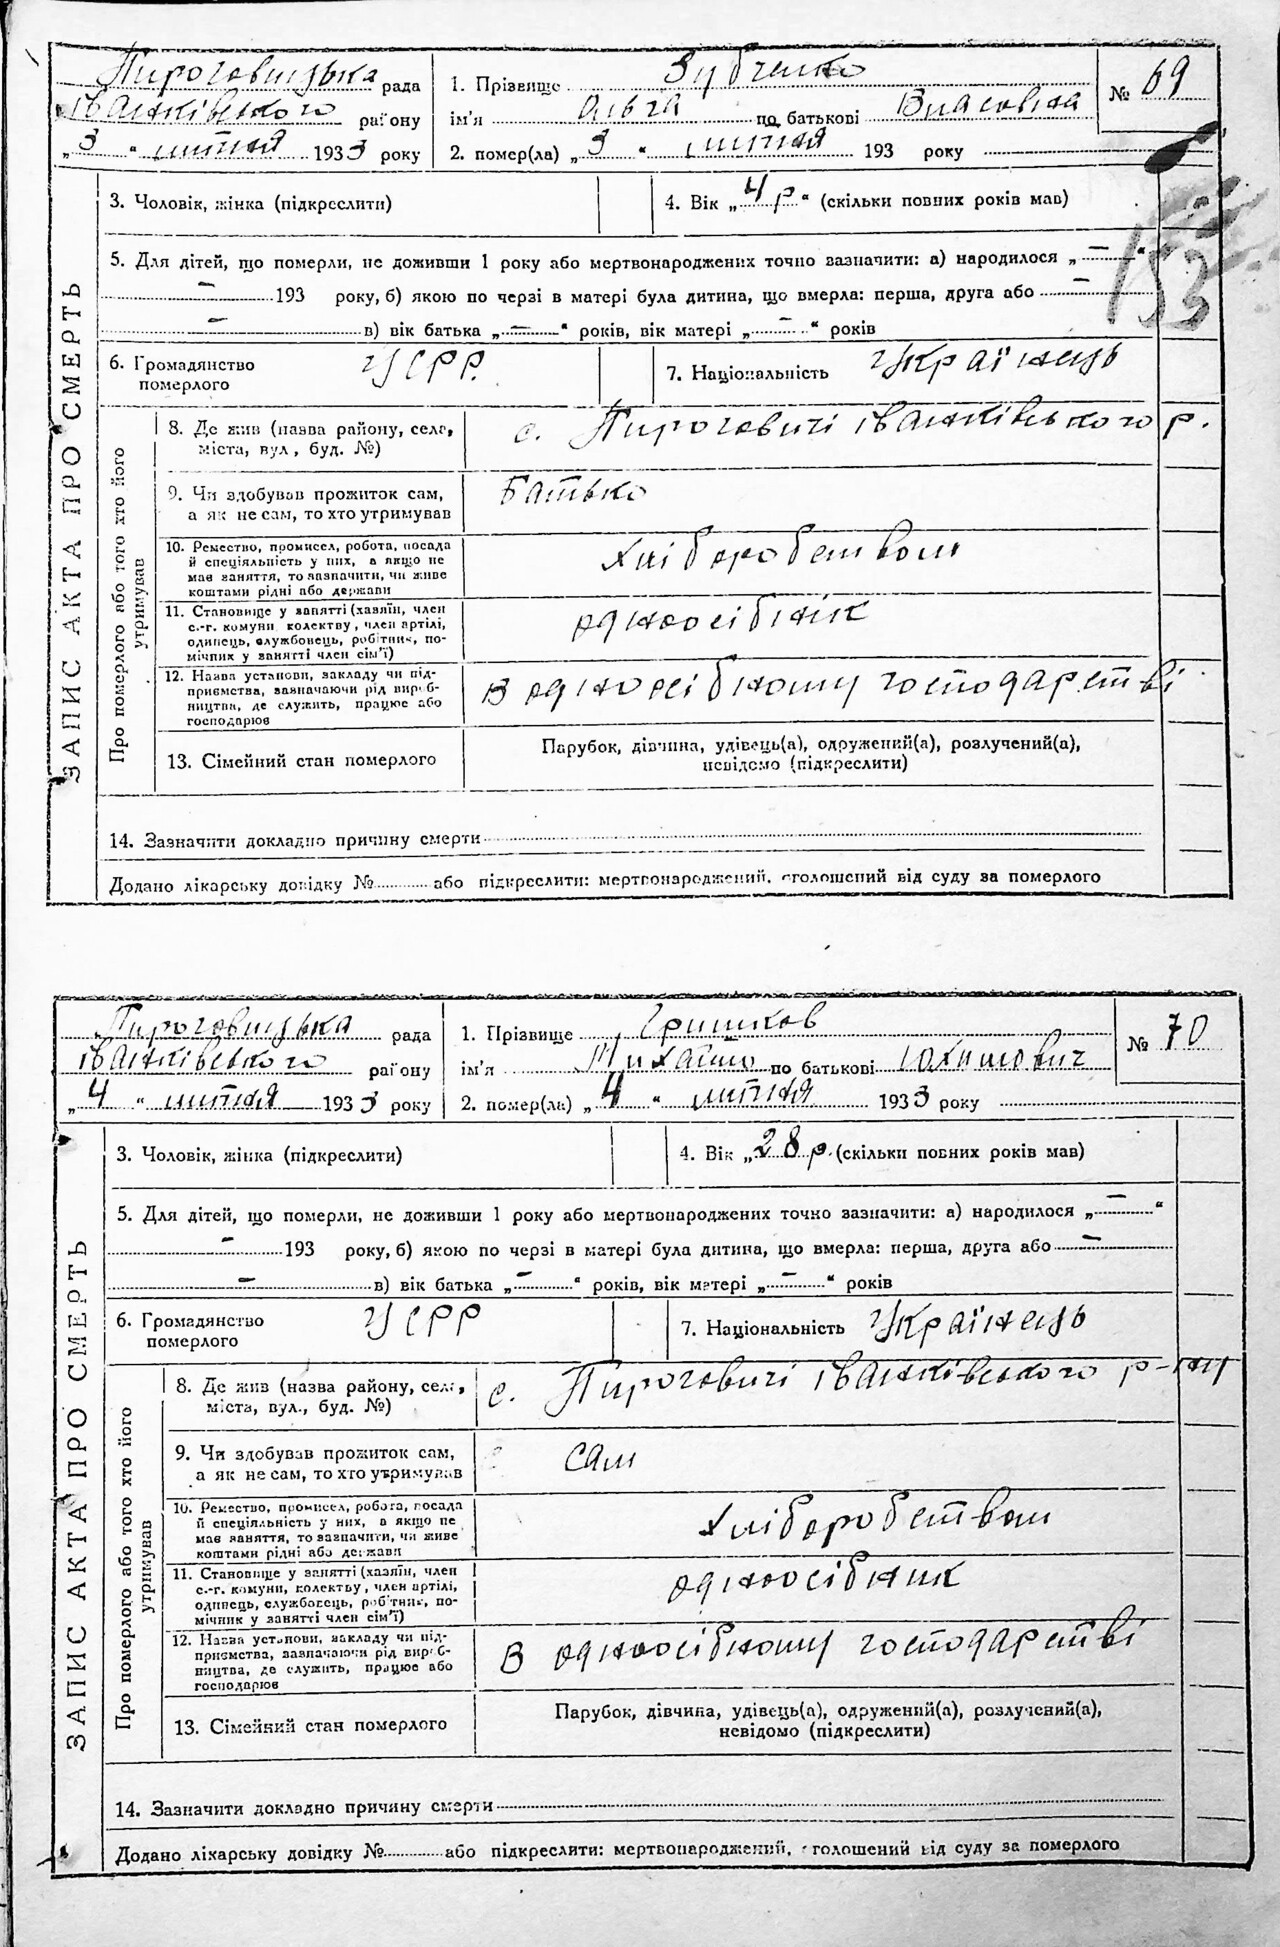 Пироговицька рада
Іванківського району
„3“ липня 1933 року
1. Прізвище Зубченко
ім'я Ольга по батькові Власовна
2. помер(ла) „3“ липня 193 року
№ 69
153
ЗАПИС АКТА ПРО СМЕРТЬ
3. Чоловік, жінка (підкреслити)
4. Вік „4 р.“ (скільки повних років мав)
5. Для дітей, що померли, не доживши 1 року або мертвонароджених точно зазначити: а) народилося „—“
— 193 року, б) якою по черзі в матері була дитина, що вмерла: перша, друга або —
— в) вік батька „—“ років, вік матері „—“ років
6. Громадянство померлого УСРР.
7. Національність Українець
Про померлого або того хто його утримував
8. Де жив (назва району, села,
міста, вул, буд. №)
с. Пироговичі Іванківського р.
9. Чи здобував прожиток сам,
а як не сам, то хто утримував
Батько
10. Ремество, промисел, робота, посада
й спеціяльність у них, а якщо не
має заняття, то зазначити, чи живе
коштами рідні або держави
Хліборобством
11. Становище у занятті (хазяїн, член
с.-г. комуни колективу, член артілі,
одинець, службовець, робітник, по-
мічник у занятті член сім'ї)
односібнік
12. Назва установи, закладу чи під-
приємства, зазначаючи рід вироб-
ництва, де служить, працює або
господарює
В односібному господарстві
13. Сімейний стан померлого
Парубок, дівчина, удівець(а), одружений(а), розлучений(а),
невідомо (підкреслити)
14. Зазначити докладно причину смерти
Додано лікарську довідку № або підкреслити: мертвонароджений, оголошений від суду за померлого
Пироговицька рада
Іванківського району
„4“ липня 1933 року
1. Прізвище Гришков
ім'я Михайло по батькові Юхимович
2. помер(ла) „4“ липня 1933 року
№ 70
ЗАПИС АКТА ПРО СМЕРТЬ
3. Чоловік, жінка (підкреслити)
4. Вік „28 р. (скільки повних років мав)
5. Для дітей, що померли, не доживши 1 року або мертвонароджених точно зазначити: а) народилося „—“
— 193 року, б) якою по черзі в матері була дитина, що вмерла: перша, друга або —
— в) вік батька „—“ років, вік матері „—“ років
6. Громадянство померлого УСРР
7. Національність Українець
Про померлого або того хто його утримував
8. Де жив (назва району, села,
міста, вул., буд. №)
с. Пироговичі Іванківського р-ну
9. Чи здобував прожиток сам,
а як не сам, то хто утримував
сам
10. Ремество, промисел, робота, посада
й спеціяльність у них, а якщо не
має заняття, то зазначити, чи живе
коштами рідні або держави
Хліборобством
11. Становище у занятті (хазяїн, член
с.-г. комуни, колективу, член артілі,
одинець, службовець, робітник, по-
мічник у занятті член сім'ї)
односібник
12. Назва установи, закладу чи під-
приємства, зазначаючи рід вироб-
ництва, де служить, працює або
господарює
В односібному господарстві
13. Сімейний стан померлого
Парубок, дівчина, удівець(а), одружений(а), розлучений(а),
невідомо (підкреслити)
14. Зазначити докладно причину смерти
Додано лікарську довідку № або підкреслити: мертвонароджений, оголошений від суду за померлого